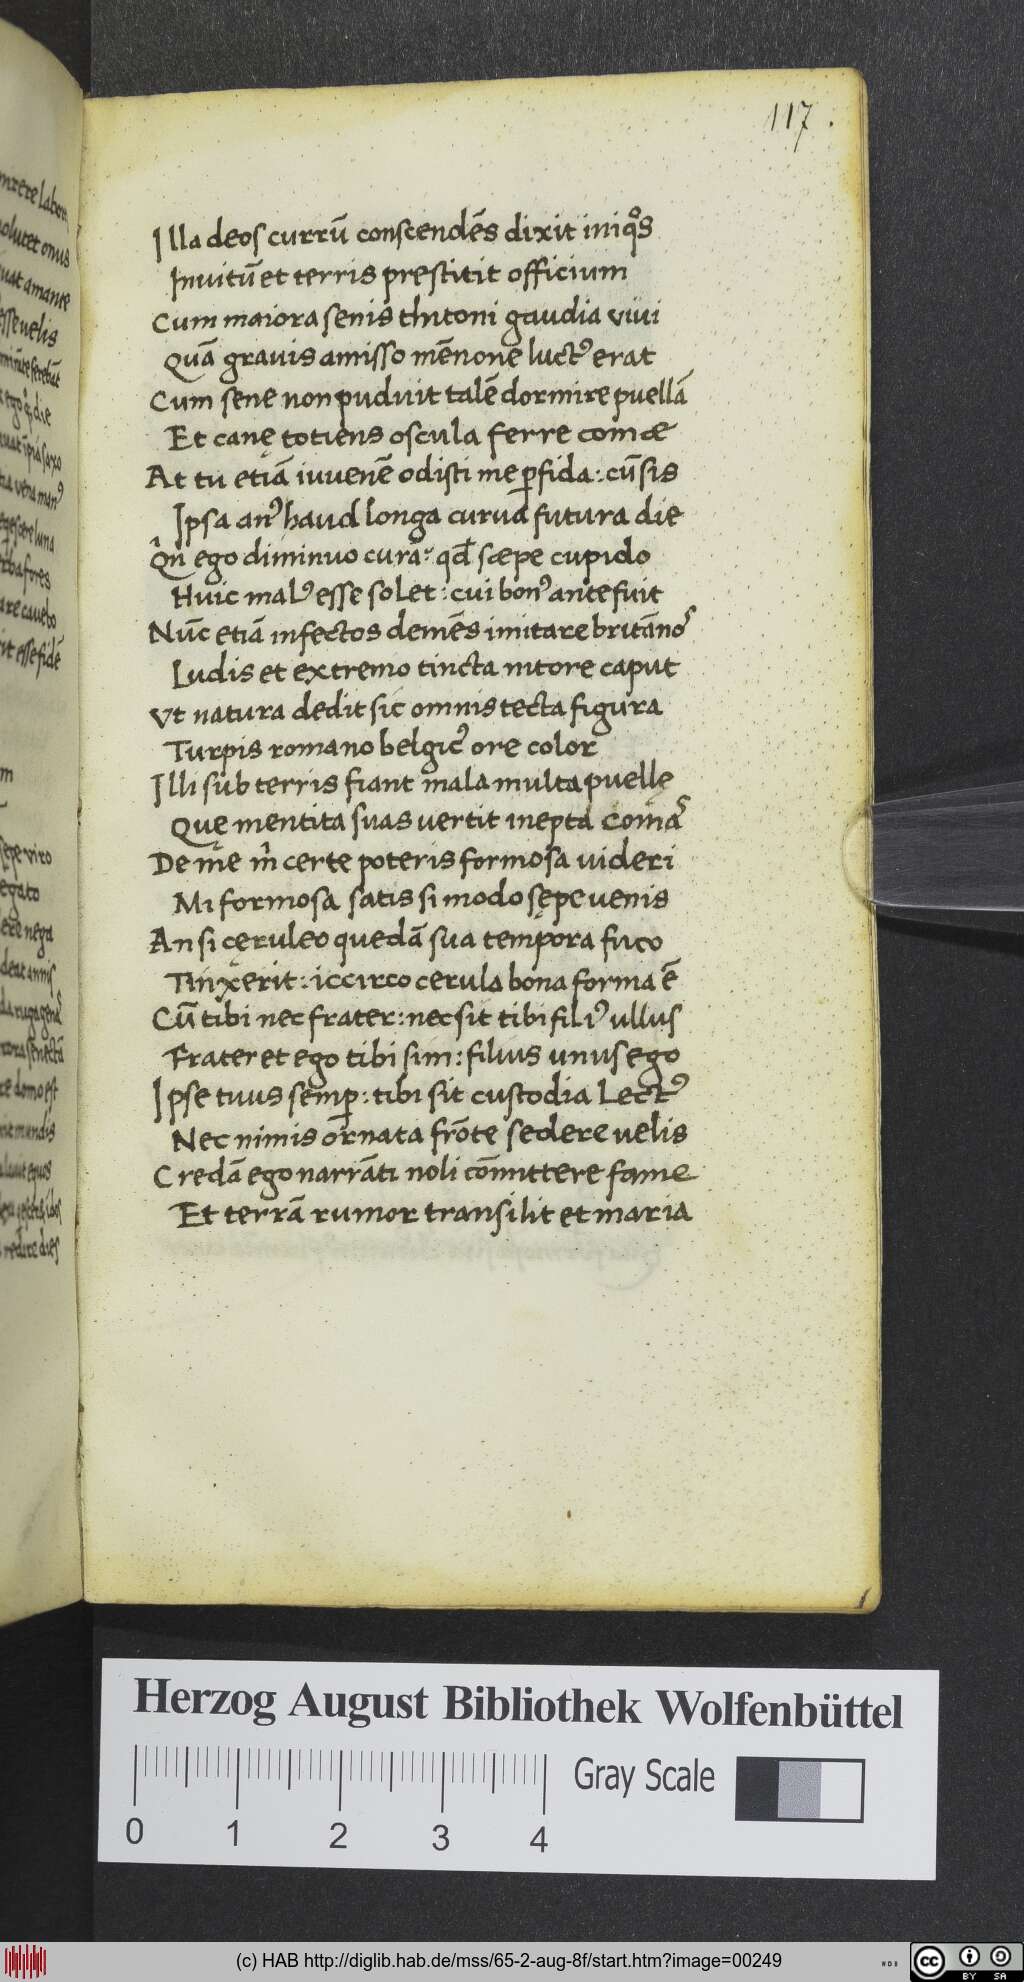 117.
Illa deos currū conscendēs dixit iniqͦs
Inuitū et terris prestitit officium
Cum maiora senis thitoni gaudia viui
Quā grauis amisso mēnone luctꝰ erat
Cum sene non puduit talē dormire puellā
Et canę totiens oscula ferre comæ
At tu etiā iuvenē odisti me ꝑfida: cū sis
Ipsa anꝰ haud longa curua futura die
Qn̂ ego diminuo curā: qđ sæpe cupido
Huic malꝰ esse solet: cui bonꝰ ante fuit
Nūc etiā infectos demēs imitare britānoˢ
Ludis et extremo tincta nitore caput
Vt natura dedit sic omnis tecta figura
Turpis romano belgicꝰ ore color
Illi sub terris fiant mala multa puellę
Quę mentita suas uertit inepta comaˢ
De me m̂ certe poteris formosa uideri
Mi formosa satis si modo sępe uenis
An si cęruleo quedā sua tempora fuco
Tinxerit: iccirco cerula bona forma ē
Cū tibi nec frater: nec sit tibi filiꝰ ullus
Frater et ego tibi sim: filius unus ego
Ipse tuus semꝑ: tibi sit custodia Lectꝰ
Nec nimis ornata frōte sedere uelis
Credā ego narrāti noli cōmittere famę
Et terrā rumor transilit et maria
Herzog August Bibliothek Wolfenbüttel
Gray Scale
0 1 2 3 4
(c) HAB http://diglib.hab.de/mss/65-2-aug-8f/start.htm?image=00249
cc BY SA